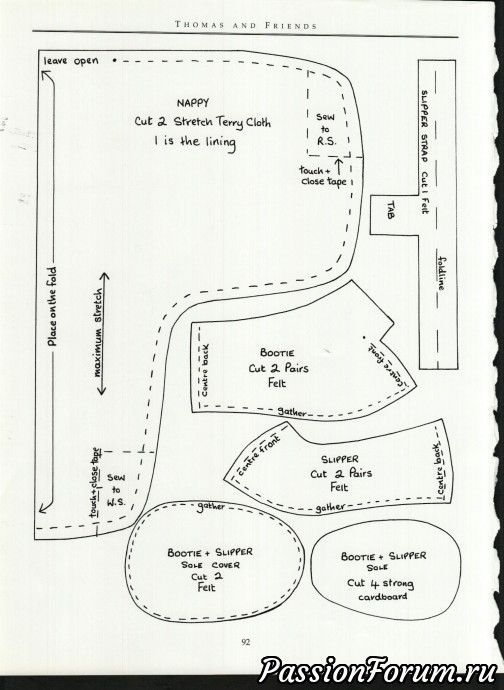 THOMAS AND FRIENDS
leave open
NAPPY
Cut 2 Stretch Terry Cloth
1 is the lining
Sew
to
R.S.
touch +
close tape
SLIPPER STRAP Cut 1 Felt
TAB
foldline
Place on the fold
maximum stretch
BOOTIE
Cut 2 Pairs
Felt
Centre back
centre front
gather
SLIPPER
Cut 2 Pairs
Felt
centre front
Centre back
gather
touch + close tape
Sew
to
W.S.
gather
BOOTIE + SLIPPER
SOLE COVER
Cut 2
Felt
BOOTIE + SLIPPER
SOLE
Cut 4 strong
cardboard
92
PassionForum.ru